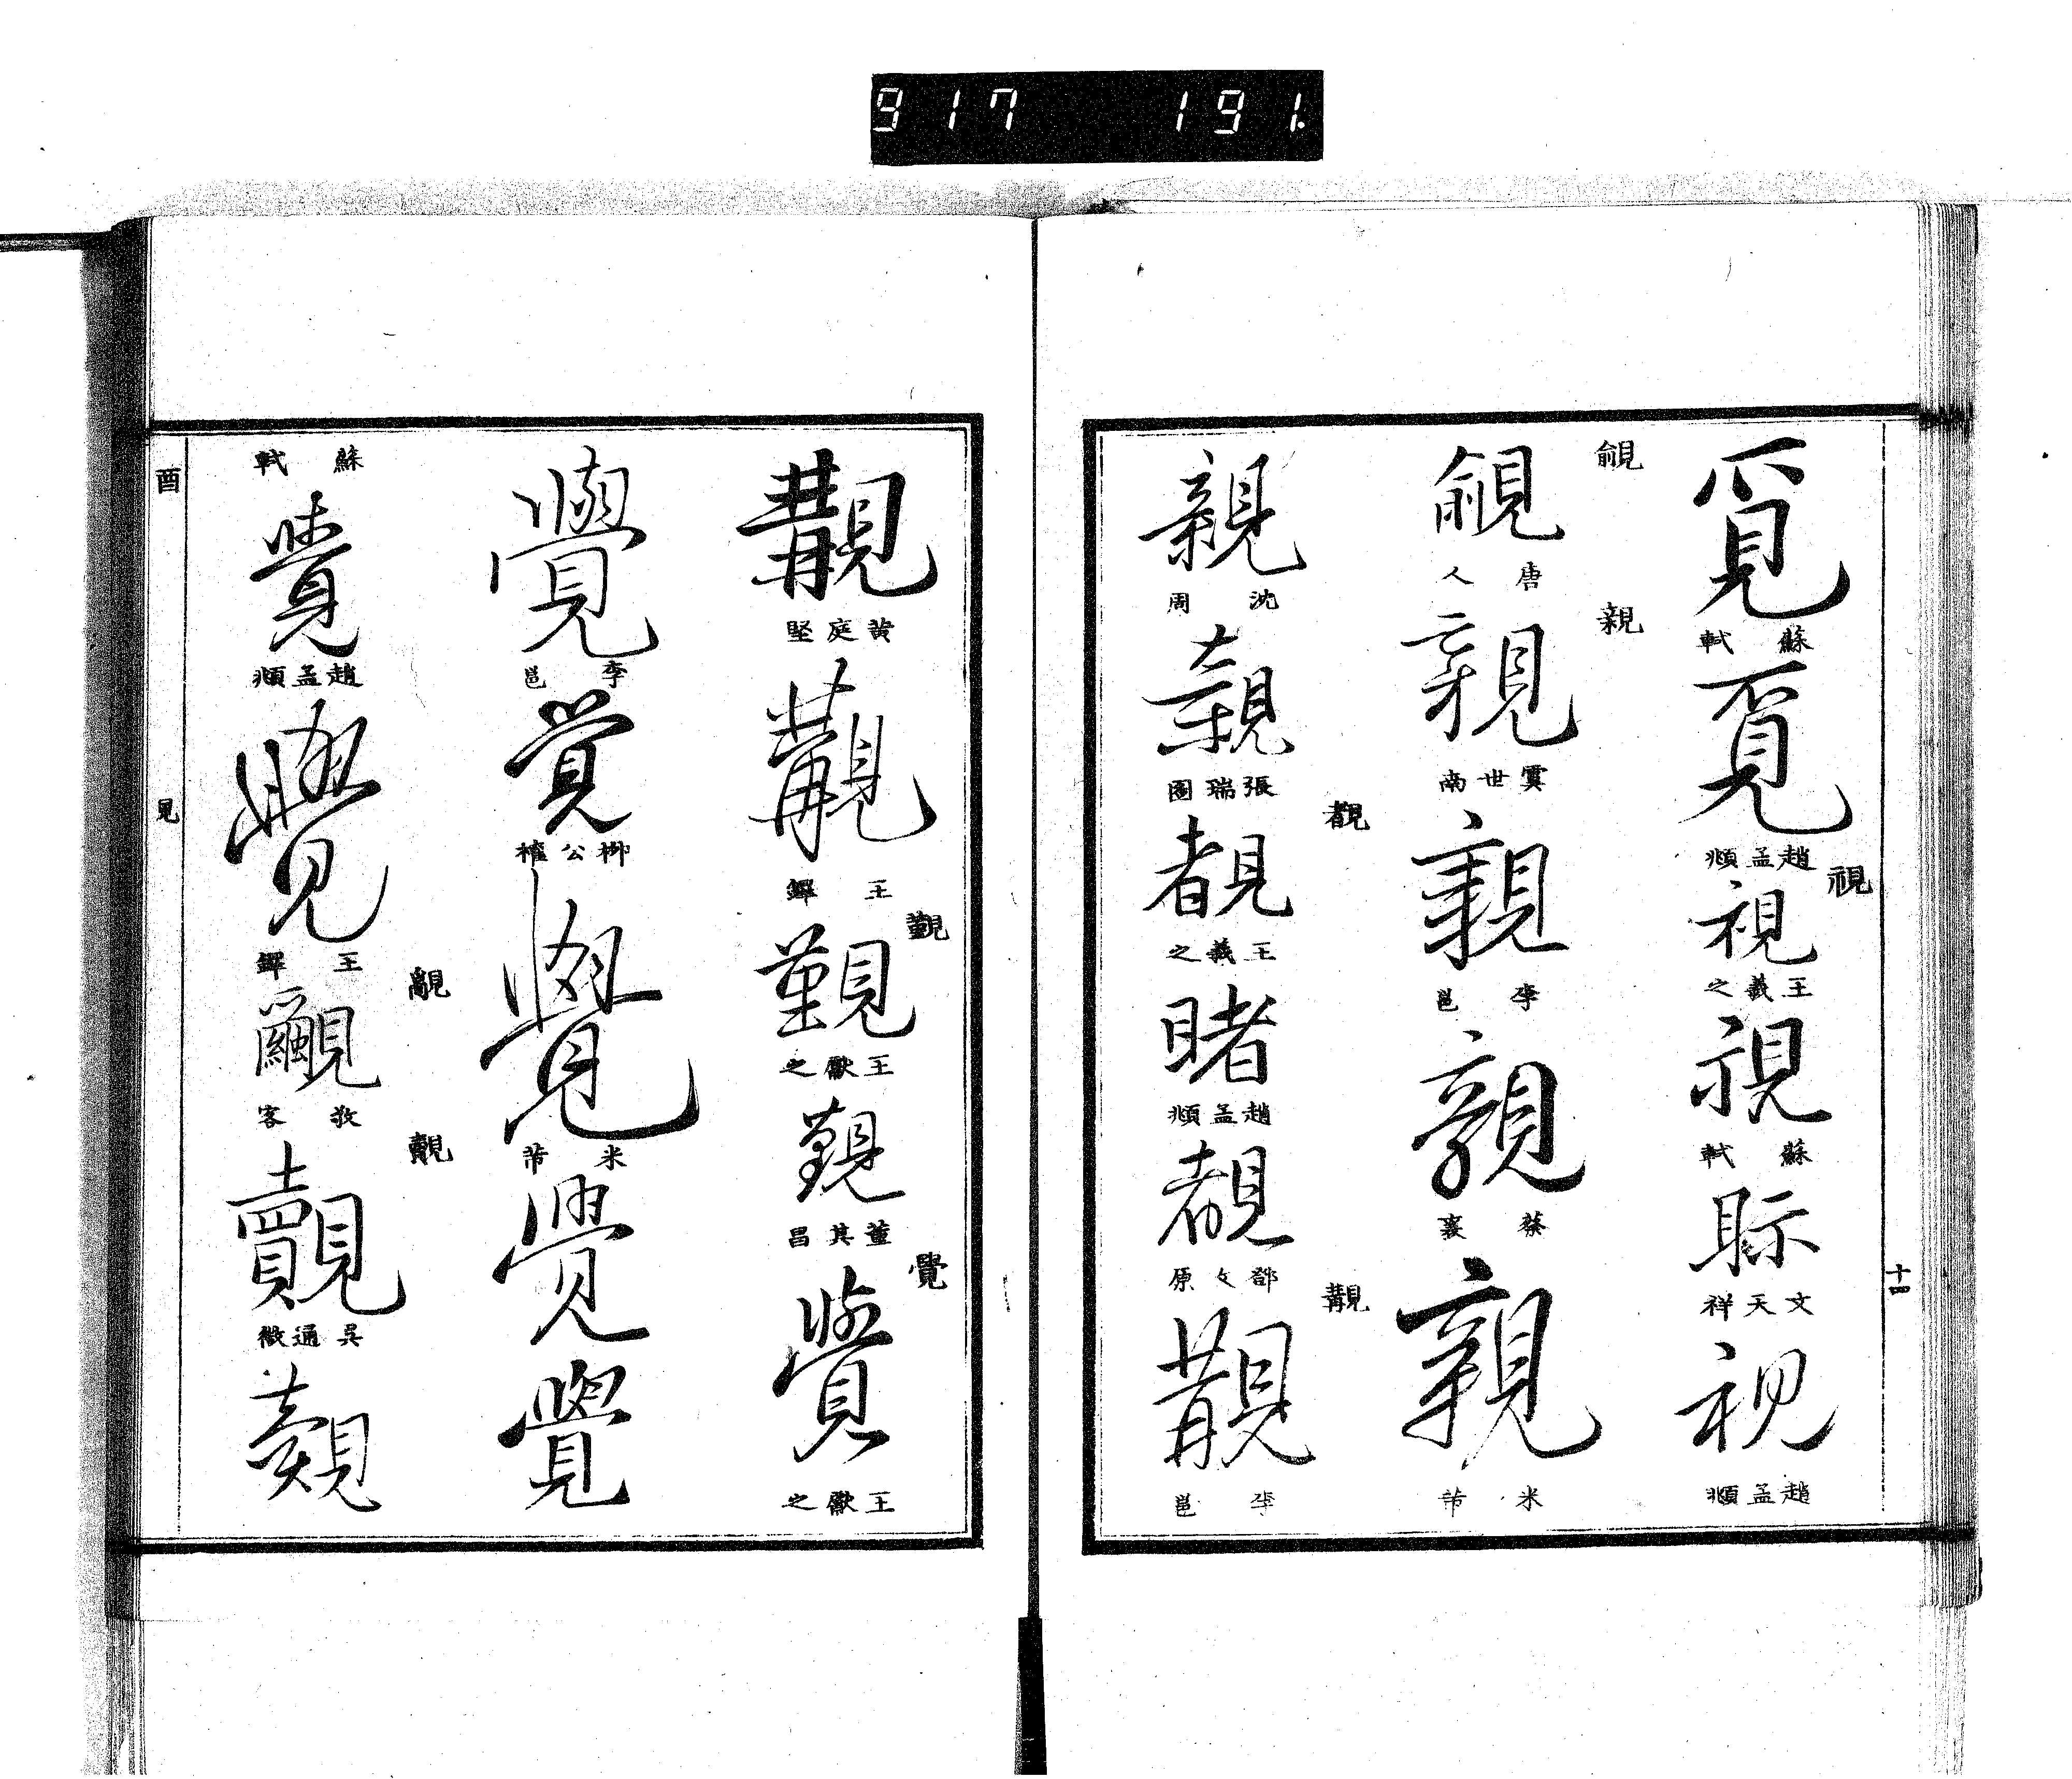 917 191.
覓
蘇軾
覓
趙孟頫
視
視
王羲之
視
蘇軾
眎
文天祥
視
趙孟頫
十四
覦
覦
唐人
親
親
虞世南
親
李邕
親
蔡襄
親
米芾
親
沈周
親
張瑞圖
覩
覩
王羲之
睹
趙孟頫
覩
鄧文原
覯
覯
李邕
覯
黃庭堅
覯
王鐸
覲
覲
王獻之
覲
董其昌
覺
覺
王獻之
覺
李邕
覚
柳公權
覺
米芾
覺
覺
蘇軾
覺
趙孟頫
覺
王鐸
覶
覶
敬客
覿
覿
吳通微
覿
酉
見